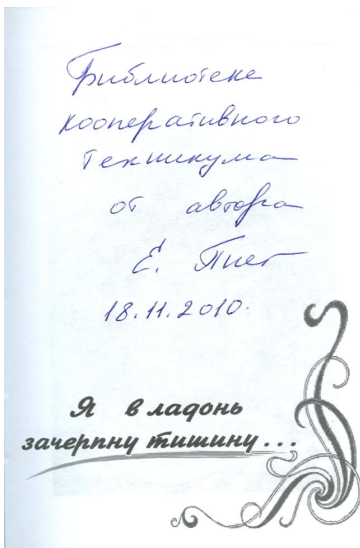 Библиотеке
кооперативного
техникума
от автора
Е.
18.11.2010.
Я в ладонь
зачерпну тишину...